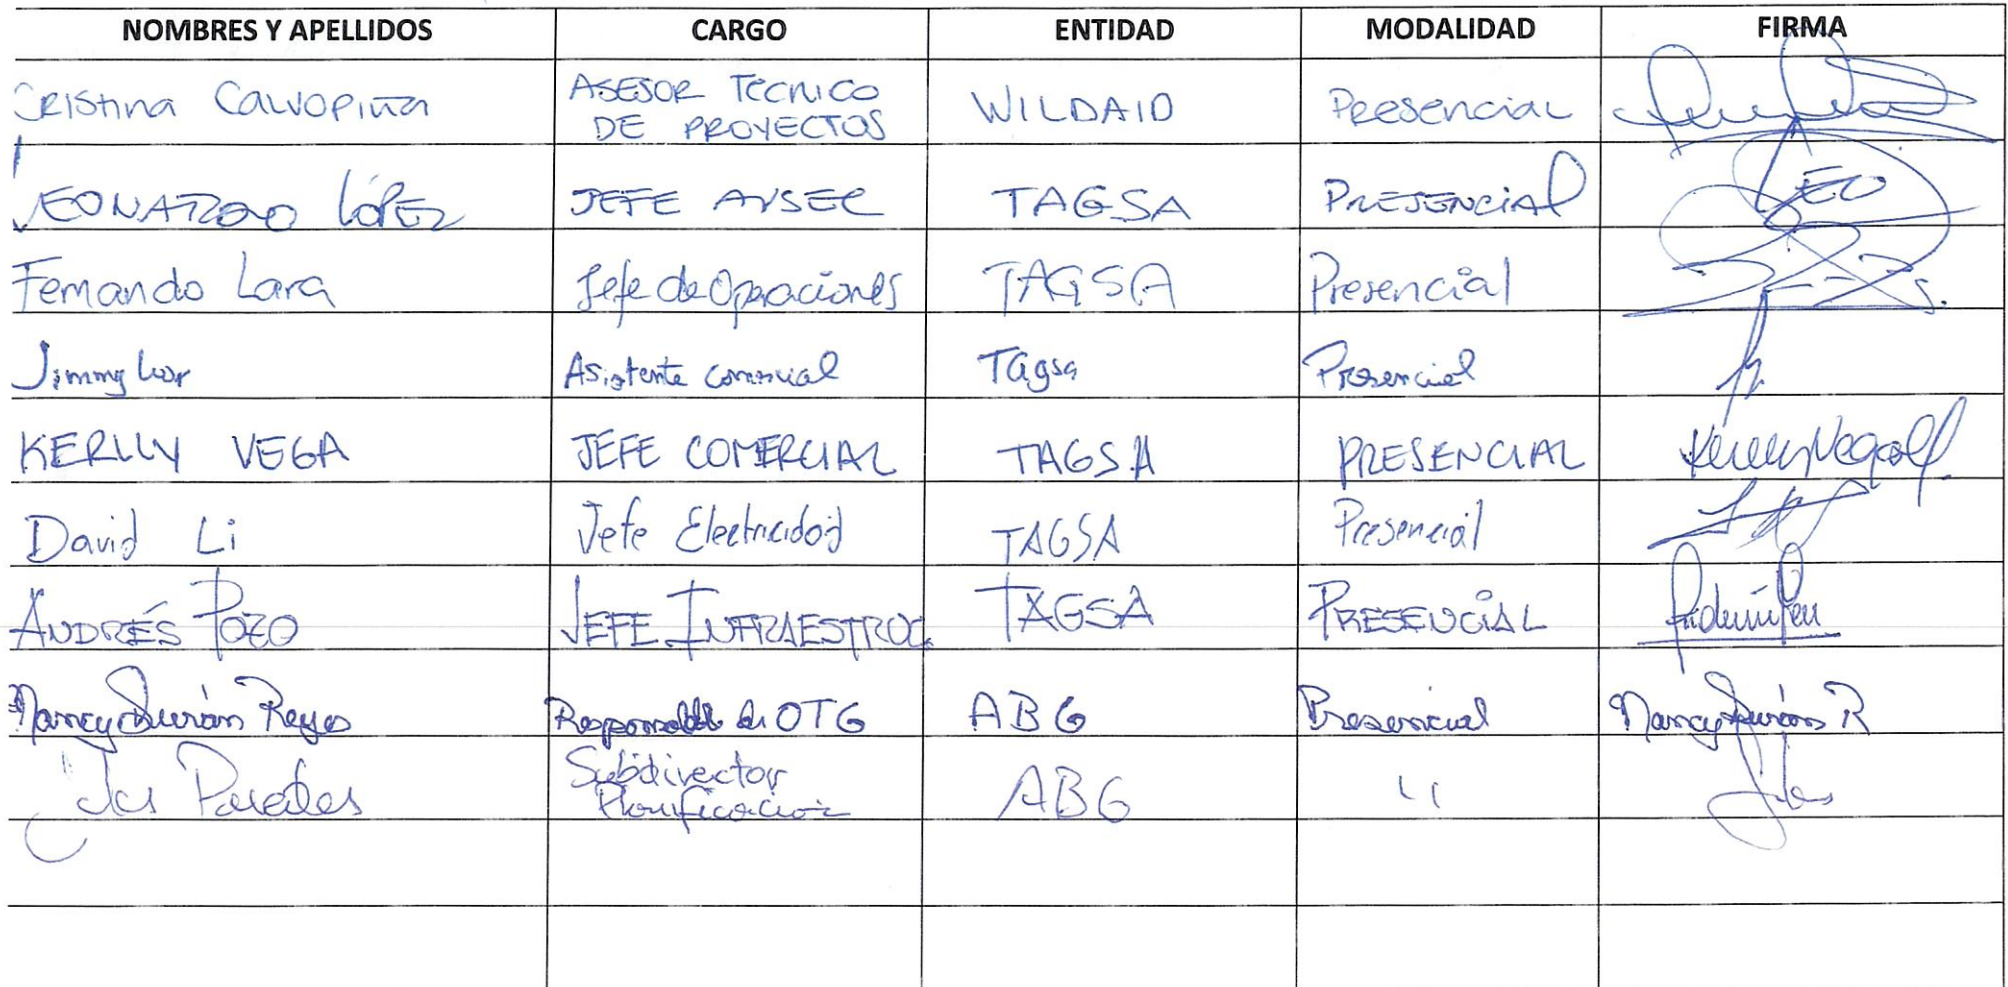 NOMBRES Y APELLIDOS CARGO ENTIDAD MODALIDAD FIRMA
Cristina Calvopiña ASESOR TÉCNICO DE PROYECTOS WILDAID Presencial
LEONARDO LÓPEZ JEFE AVSEC TAGSA PRESENCIAL LEO
Fernando Lara Jefe de Operaciones TAGSA Presencial
Jimmy Asistente comercial Tagsa Presencial
KERLLY VEGA JEFE COMERCIAL TAGSA PRESENCIAL Kerlly Vega
David Li Jefe Electricidad TAGSA Presencial
ANDRÉS POZO JEFE INFRAESTRUC TAGSA PRESENCIAL
Nancy Durán Reyes Responsable de OTG ABG Presencial Nancy Durán R
Paredes Subdirector Planificación ABG ''